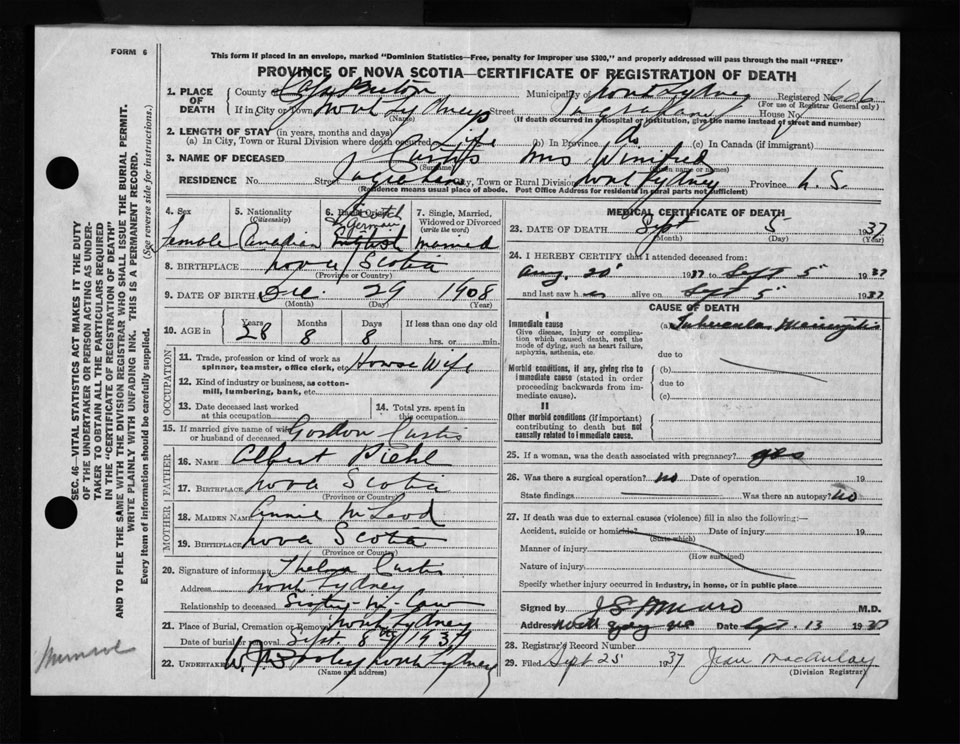 FORM 6
This form if placed in an envelope, marked "Dominion Statistics—Free, penalty for improper use $300," and properly addressed will pass through the mail "FREE"
PROVINCE OF NOVA SCOTIA—CERTIFICATE OF REGISTRATION OF DEATH
1. PLACE OF DEATH
County of Cape Breton Municipality of North Sydney Registered No. 606
(For use of Registrar General only)
If in City or Town North Sydney Street House No.
(Name) (If death occurred in a hospital or institution, give the name instead of street and number)
2. LENGTH OF STAY (in years, months and days)
(a) In City, Town or Rural Division where death occurred Life (b) In Province do (c) In Canada (if immigrant)
3. NAME OF DECEASED Curtis Mrs Winifred
(Surname) (Given name or names)
RESIDENCE No. Street City, Town or Rural Division North Sydney Province N. S.
(Residence means usual place of abode. Post Office Address for residents in rural parts not sufficient)
4. Sex Female
5. Nationality (Citizenship) Canadian
6. Racial Origin Scotch German English
7. Single, Married, Widowed or Divorced (write the word) married
8. BIRTHPLACE Nova Scotia
(Province or Country)
9. DATE OF BIRTH Dec. 29 1908
(Month) (Day) (Year)
10. AGE in Years 28 Months 8 Days 8 If less than one day old hrs. or min.
OCCUPATION
11. Trade, profession or kind of work as spinner, teamster, office clerk, etc. House Wife
12. Kind of industry or business, as cotton-mill, lumbering, bank, etc.
13. Date deceased last worked at this occupation
14. Total yrs. spent in this occupation
15. If married give name of wife or husband of deceased Gordon Curtis
FATHER
16. NAME Albert Piehl
17. BIRTHPLACE Nova Scotia
(Province or Country)
MOTHER
18. MAIDEN NAME Annie McLeod
19. BIRTHPLACE Nova Scotia
(Province or Country)
20. Signature of informant Thelma Curtis
Address North Sydney
Relationship to deceased Sister-in-law
21. Place of Burial, Cremation or Removal North Sydney
Date of burial or removal Sept. 8th 1937
22. UNDERTAKER North Sydney
(Name and address)
MEDICAL CERTIFICATE OF DEATH
23. DATE OF DEATH Sept 5 1937
(Month) (Day) (Year)
24. I HEREBY CERTIFY that I attended deceased from:
Aug. 20 1937 to Sept 5 1937
and last saw her alive on Sept 5 1937
CAUSE OF DEATH
I
Immediate cause
Give disease, injury or complication which caused death, not the mode of dying, such as heart failure, asphyxia, asthenia, etc.
(a) Tubercular Meningitis
due to
Morbid conditions, if any, giving rise to immediate cause (stated in order proceeding backwards from immediate cause).
(b)
due to
(c)
II
Other morbid conditions (if important) contributing to death but not causally related to immediate cause.
25. If a woman, was the death associated with pregnancy? yes
26. Was there a surgical operation? no Date of operation 19
State findings Was there an autopsy? no
27. If death was due to external causes (violence) fill in also the following:—
Accident, suicide or homicide? Date of injury 19
(State which)
Manner of injury
(How sustained)
Nature of injury
Specify whether injury occurred in industry, in home, or in public place
Signed by J S Munro M.D.
Address Date Sept. 13 1937
28. Registrar's Record Number
29. Filed Sept 25 1937 Jean MacAulay
(Division Registrar)
SEC. 46—VITAL STATISTICS ACT MAKES IT THE DUTY
OF THE UNDERTAKER OR PERSON ACTING AS UNDERTAKER TO OBTAIN ALL THE PARTICULARS REQUIRED
IN THE "CERTIFICATE OF REGISTRATION OF DEATH"
AND TO FILE THE SAME WITH THE DIVISION REGISTRAR WHO SHALL ISSUE THE BURIAL PERMIT.
WRITE PLAINLY WITH UNFADING INK. THIS IS A PERMANENT RECORD.
Every item of information should be carefully supplied. (See reverse side for instructions.)
Munroe